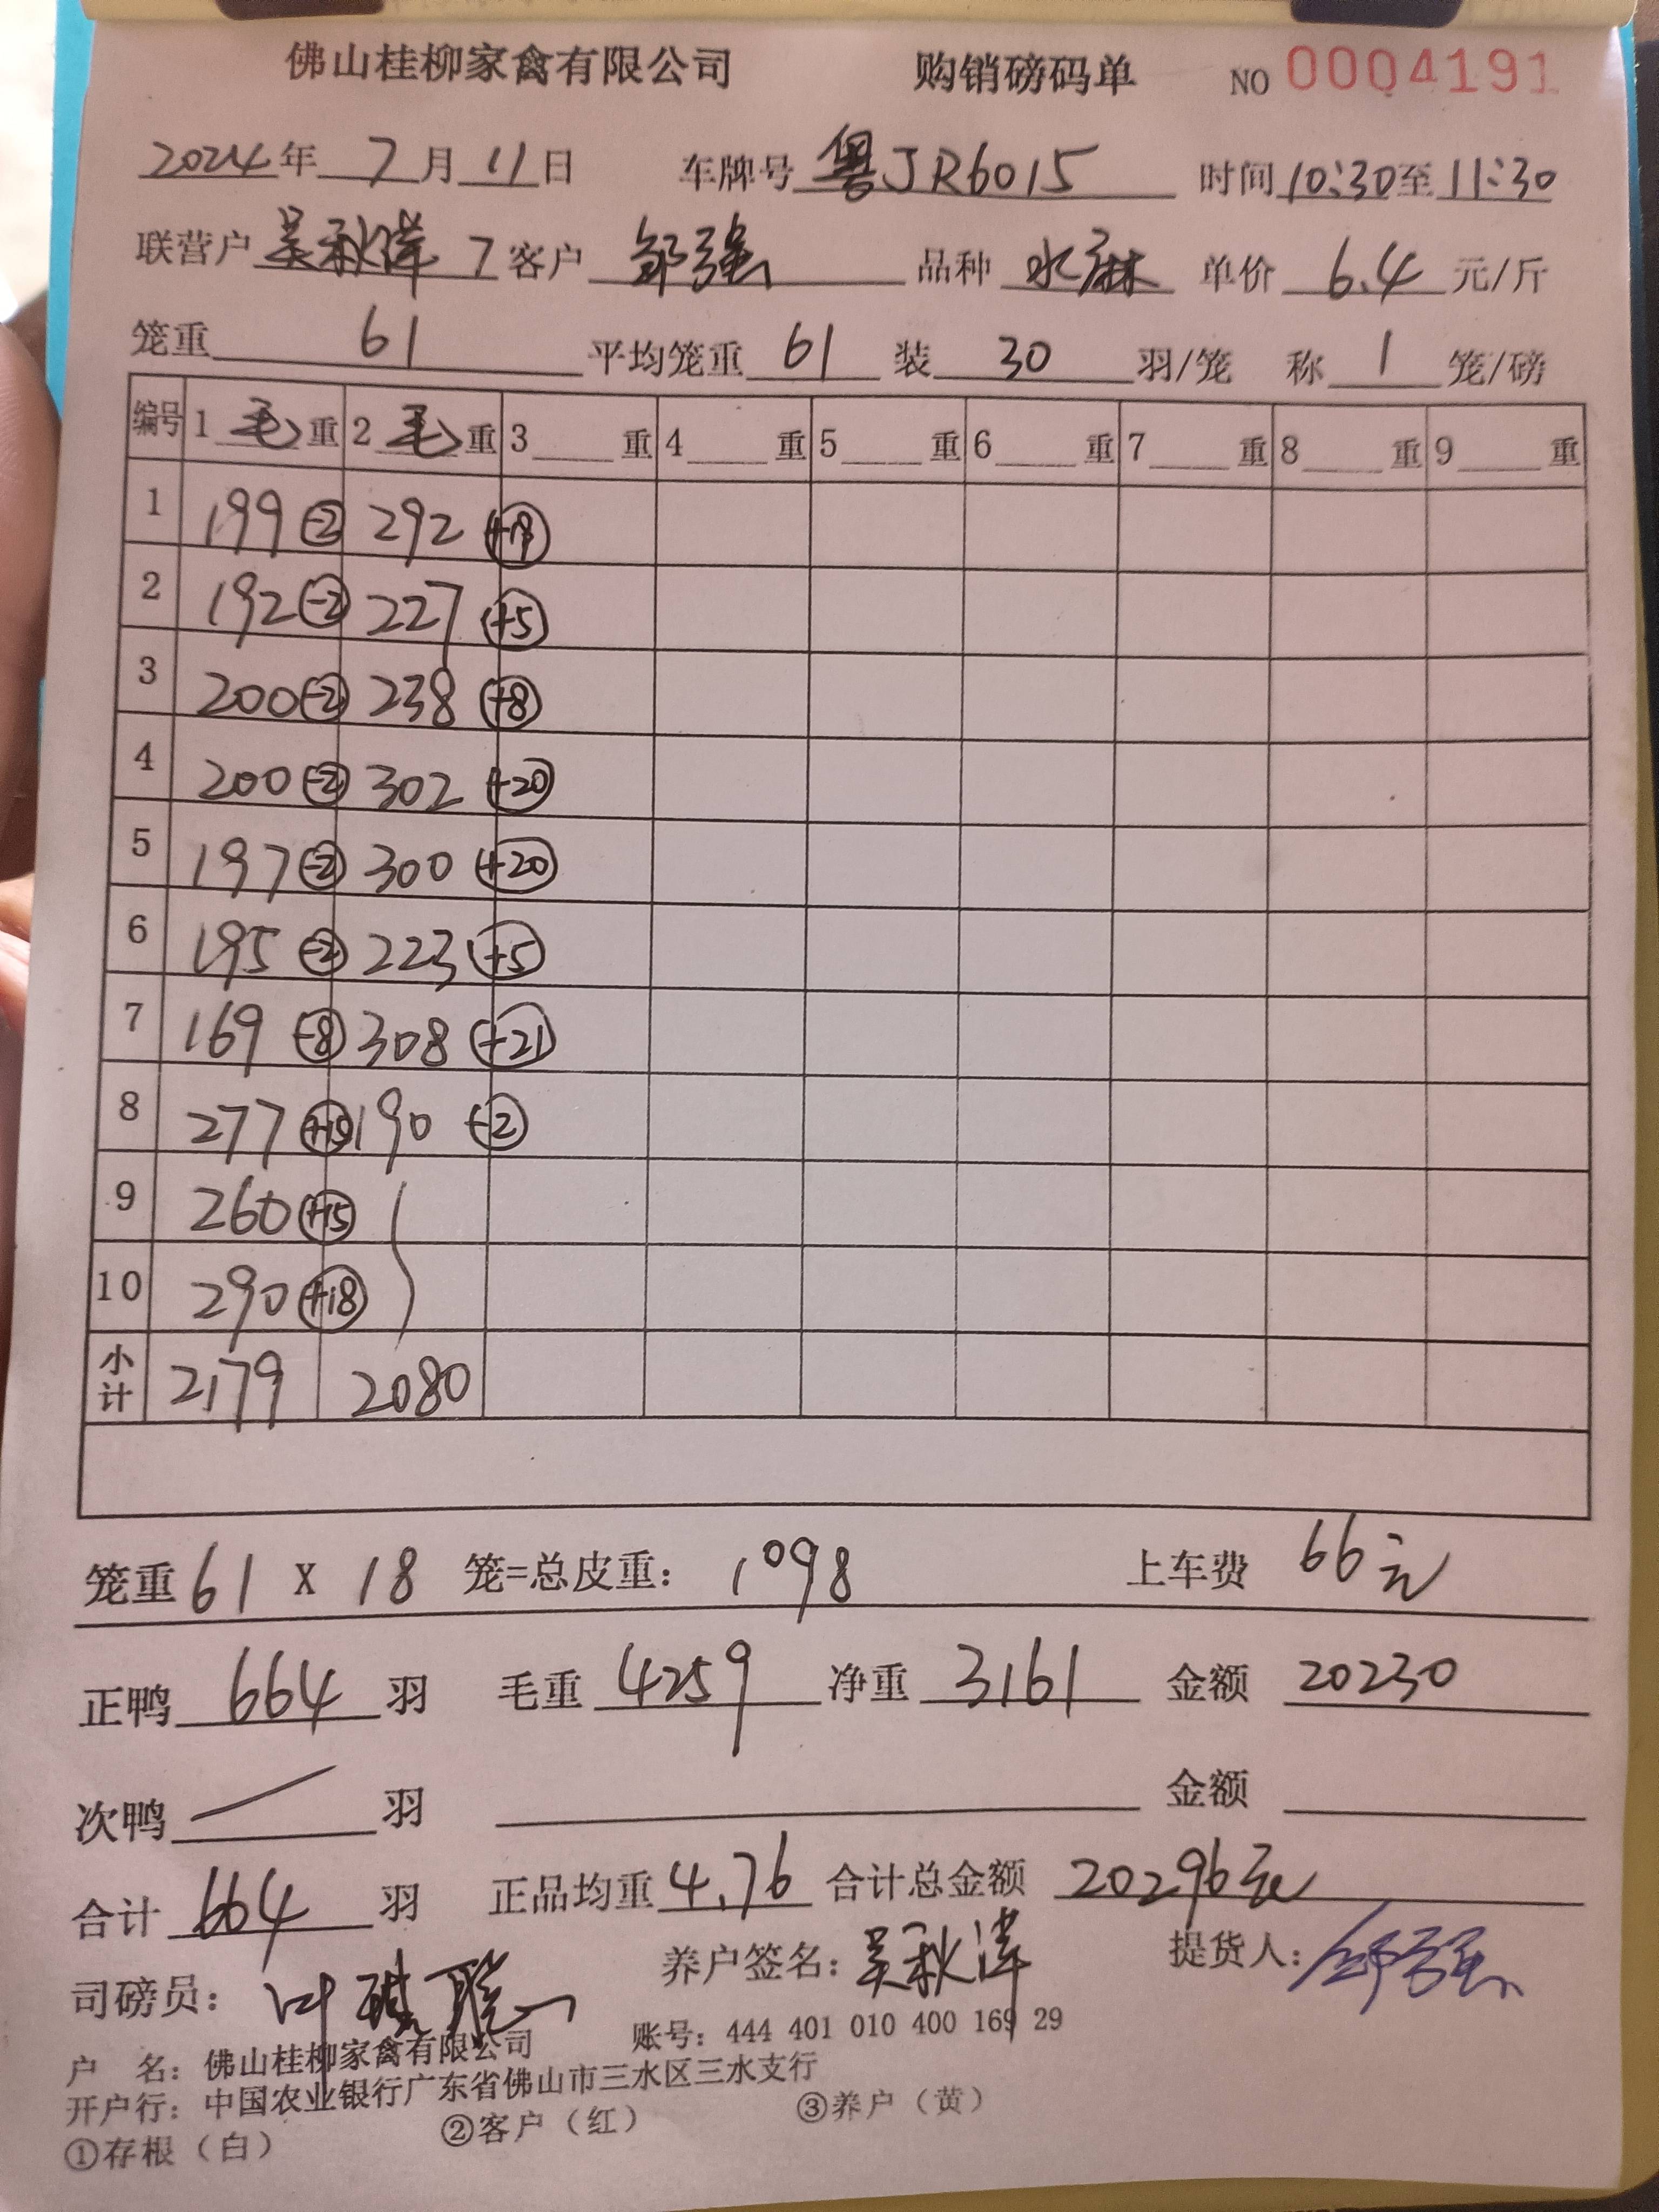 佛山桂柳家禽有限公司 购销磅码单 NO 0004191
2024年 7月 11日 车牌号 粤JR6015 时间 10:30至 11:30
联营户 吴秋洋 7 客户 邹强 品种 水麻 单价 6.4 元/斤
笼重 61 平均笼重 61 装 30 羽/笼 称 1 笼/磅
编号 1 毛 重 2 毛 重 3 重 4 重 5 重 6 重 7 重 8 重 9 重
1 199 -2 292
2 192 -2 227 +5
3 200 -2 238 +8
4 200 -2 302 +20
5 197 -2 300 +20
6 195 -2 223 +5
7 169 -8 308 +21
8 277 190 -2
9 260 +15
10 290 +18
小计 2179 2080
笼重 61 X 18 笼=总皮重: 1098 上车费 66元
正鸭 664 羽 毛重 4259 净重 3161 金额 20230
次鸭 羽 金额
合计 664 羽 正品均重 4.76 合计总金额 20296元
司磅员: 叶 养户签名: 吴秋洋 提货人: 邹强
户 名: 佛山桂柳家禽有限公司 账号: 444 401 010 400 169 29
开户行: 中国农业银行广东省佛山市三水区三水支行
①存根（白） ②客户（红） ③养户（黄）